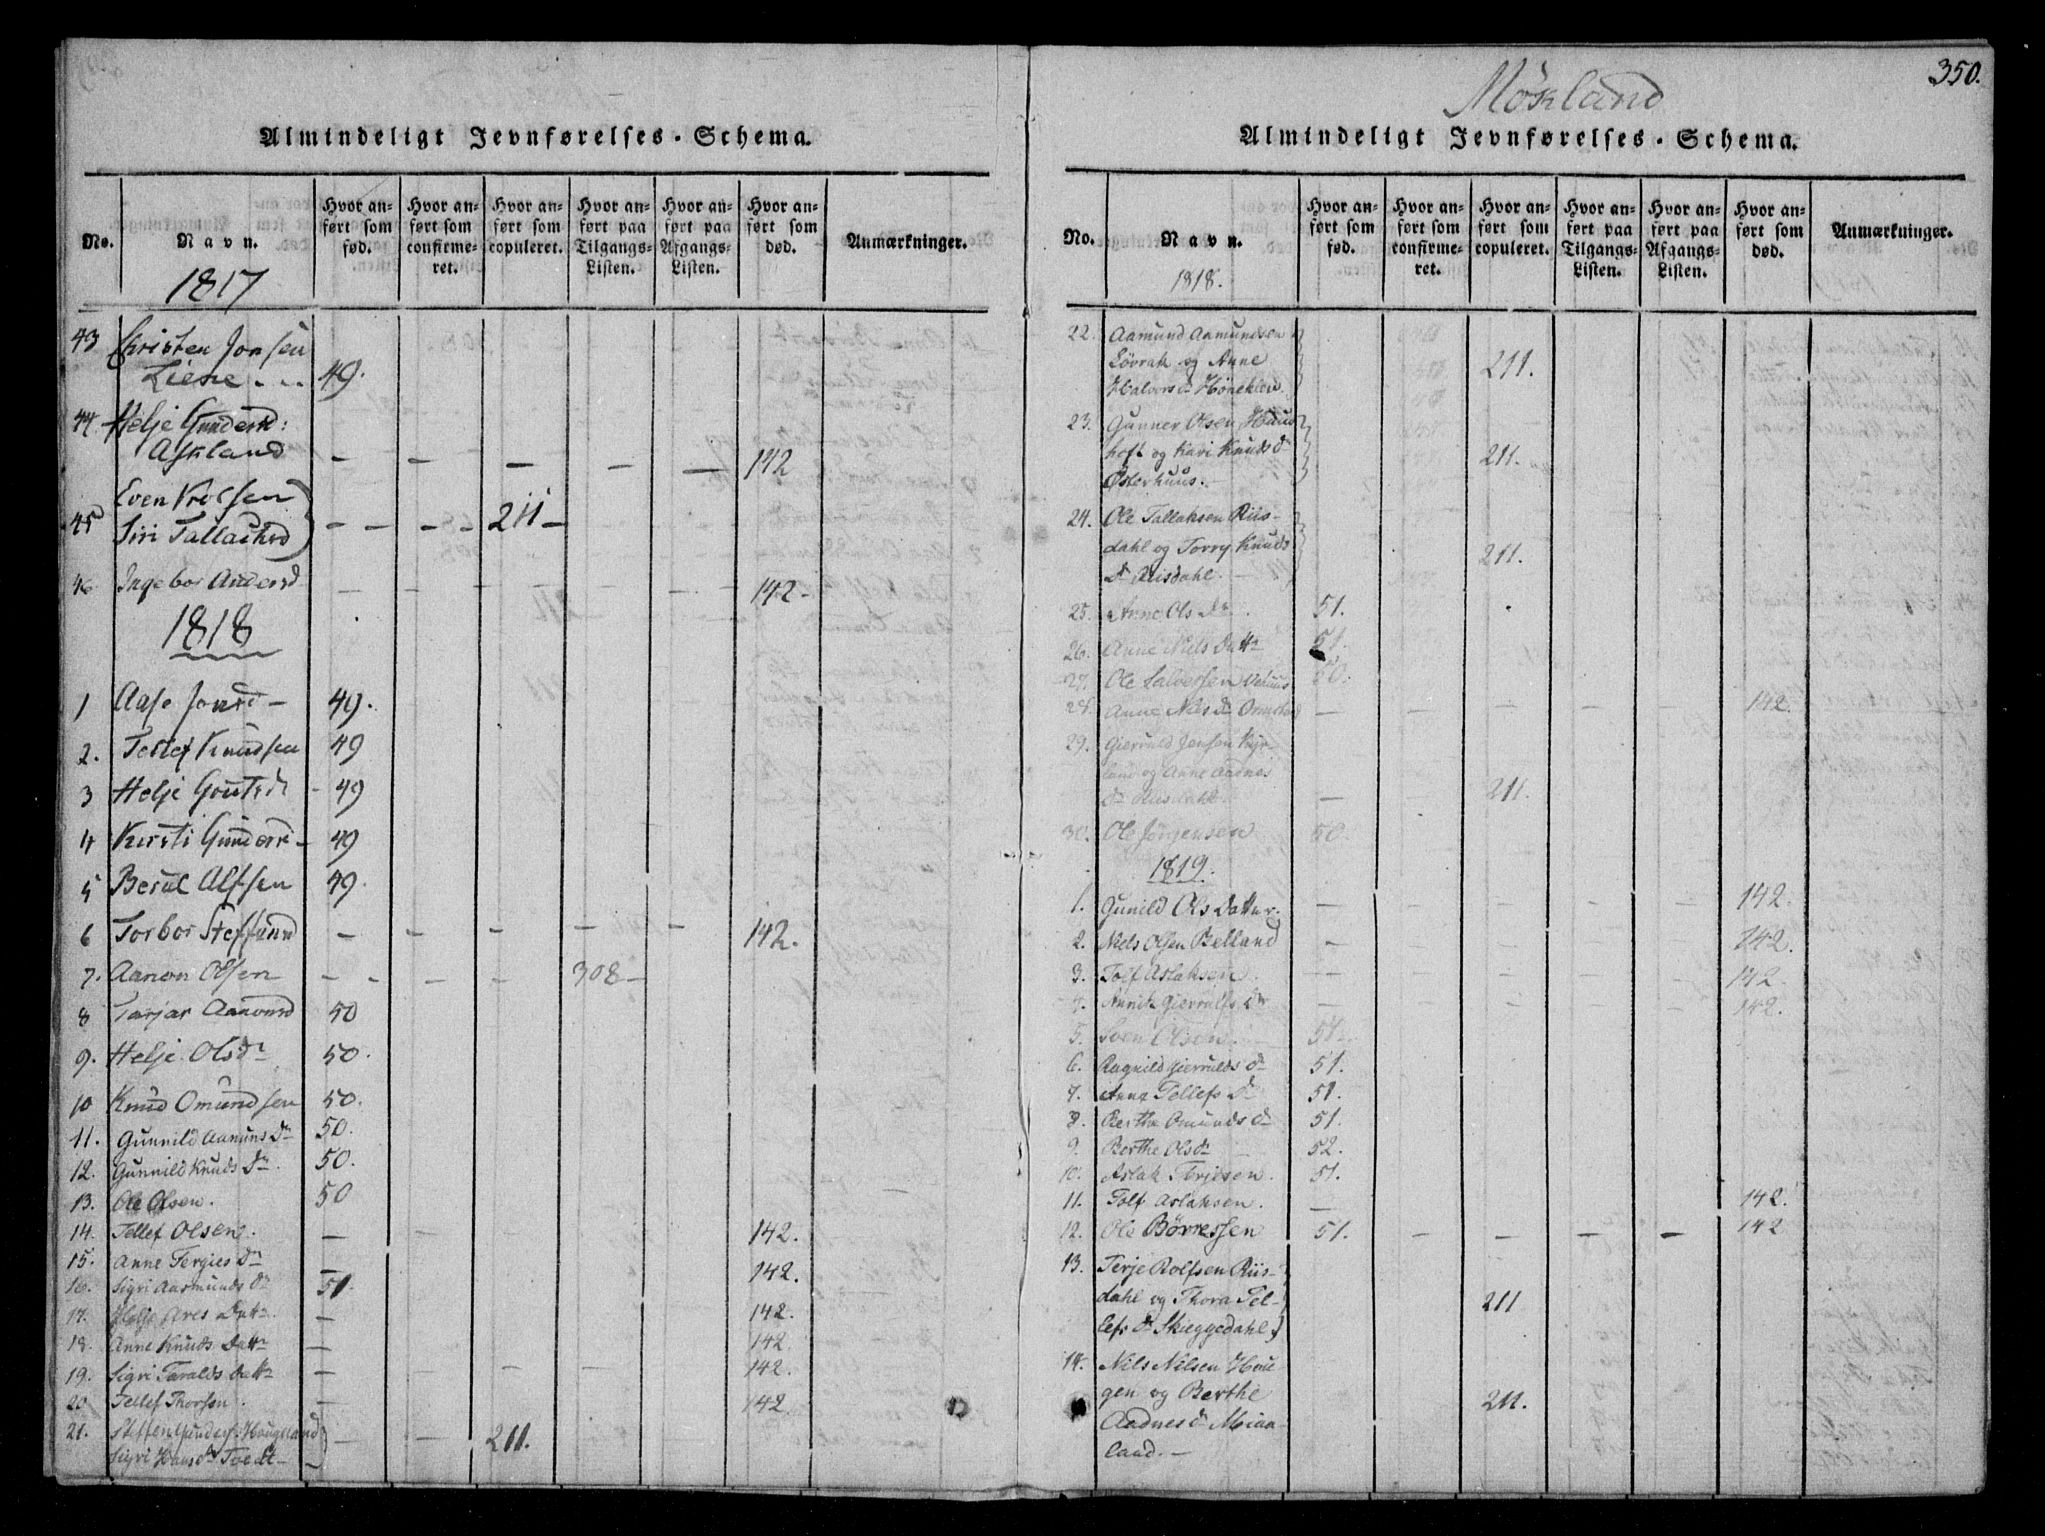 Almindeligt Jevnførelses-Schema.
No.
Navn.
Hvor anført som fød.
Hvor anført som confirmeret.
Hvor anført som copuleret.
Hvor anført paa Tilgangs-Listen.
Hvor anført paa Afgangs-Listen.
Hvor anført som død.
Anmærkninger.
1817
43 Christen Jonsen
Liene - .. 49.
44 Helje Gunders:
Askland — — — — — 142
Even Rolfsen
45 Siri Tallachsd - - - - 211 -
46 Ingebor Andersd — — — — — 142-
1818
1 Aase Jonsd - 49.
2. Tellef Knudsen 49
3 Helje Goutsd - 49
4 Kirsti Gunders - 49
5 Berul Alfsen 49.
6 Torbor Steffensd — - - - - 142.
7. Aanon Olsen - - - - 308 -
8 Tarjar Aanonsd 50
9. Helje Olsdr 50.
10 Knud Omundsen 50.
11. Gunnild Aanuns Dr 50.
12. Gunnild Knuds Dr. 50.
13. Ole Olsen. 50
14. Tellef Olsen. — - 142.
15. Anne Tergies Dr — 142.
16. Sigri Aasmunds Dr 51.
17. Helje Ares Dattr. — 142.
18. Anne Knuds Dattr — 142
19. Sigri Taralds Dattr — - - 142.
20 Tellef Thorsen. — 142
21. Steffen Gunders. Hougeland
Sigri Hans Dr Tvedt - - - 211.
350.
Møkland
Almindeligt Jevnførelses-Schema.
No.
Navn.
Hvor anført som fød.
Hvor anført som confirmeret.
Hvor anført som copuleret.
Hvor anført paa Tilgangs-Listen.
Hvor anført paa Afgangs-Listen.
Hvor anført som død.
Anmærkninger.
1818.
22. Aamund Aamundsen
Løvrak og Anne 211.
Halvors Dr
23. Gunner Olsen
og Kari Knuds Dr 211.
Østerhuus.
24. Ole Tallaksen Riis-
dahl og Torry Knuds 211.
Dr Riisdahl.
25. Anne Ols Dr 51.
26. Anne Niels Dattr 51.
27. Ole 50.
28. Anne Niels Dr — - - - - 142.
29. Giervuld Jensen
land og Anne Aadnes
Dr Riisdahl. — - 211.
30. Ole Jørgensen 50.
1819.
1. Gunild Ols Datter. — 142.
2. Niels Olsen Belland — 142.
3. Tolf Aslaksen. — 142.
4. Giervulfs Dr — 142.
5. Sven Olsen. 51.
6. Ragnild Giervulds Dr 51.
7. Anne Tellefs Dr 51.
8. Berthe Omunds Dr 51.
9. Berthe Olsdr 52.
10. Aslak Terjesen. 51.
11. Tolf Aslaksen. — 142.
12. Ole Børressen 51. - - - - 142
13. Terje Rolfsen Riis-
dahl og Thora Tel- 211
lefs Dr Skieggedahl
14. Nils Nilsen Hou-
gen og Berthe 211.
Aadnes Dr
land. -